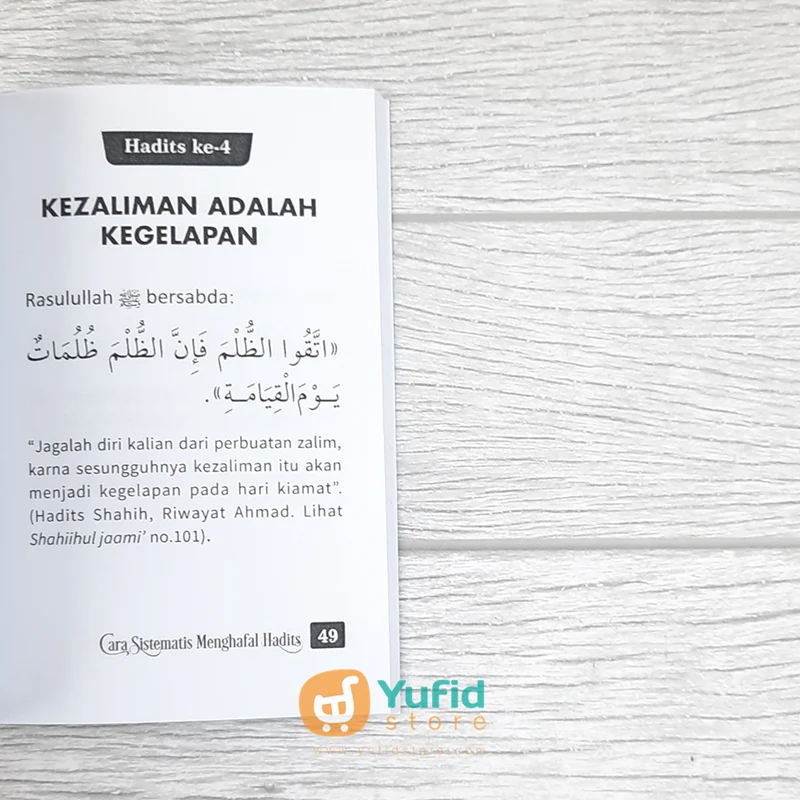 Hadits ke-4
KEZALIMAN ADALAH
KEGELAPAN
Rasulullah ﷺ bersabda:
«اتَّقُوا الظُّلْمَ فَإِنَّ الظُّلْمَ ظُلُمَاتٌ
يَـوْمَ الْقِيَامَـةِ».
“Jagalah diri kalian dari perbuatan zalim,
karna sesungguhnya kezaliman itu akan
menjadi kegelapan pada hari kiamat”.
(Hadits Shahih, Riwayat Ahmad. Lihat
Shahiihul jaami’ no.101).
Cara Sistematis Menghafal Hadits 49
Yufid
store
www.yufidstore.com